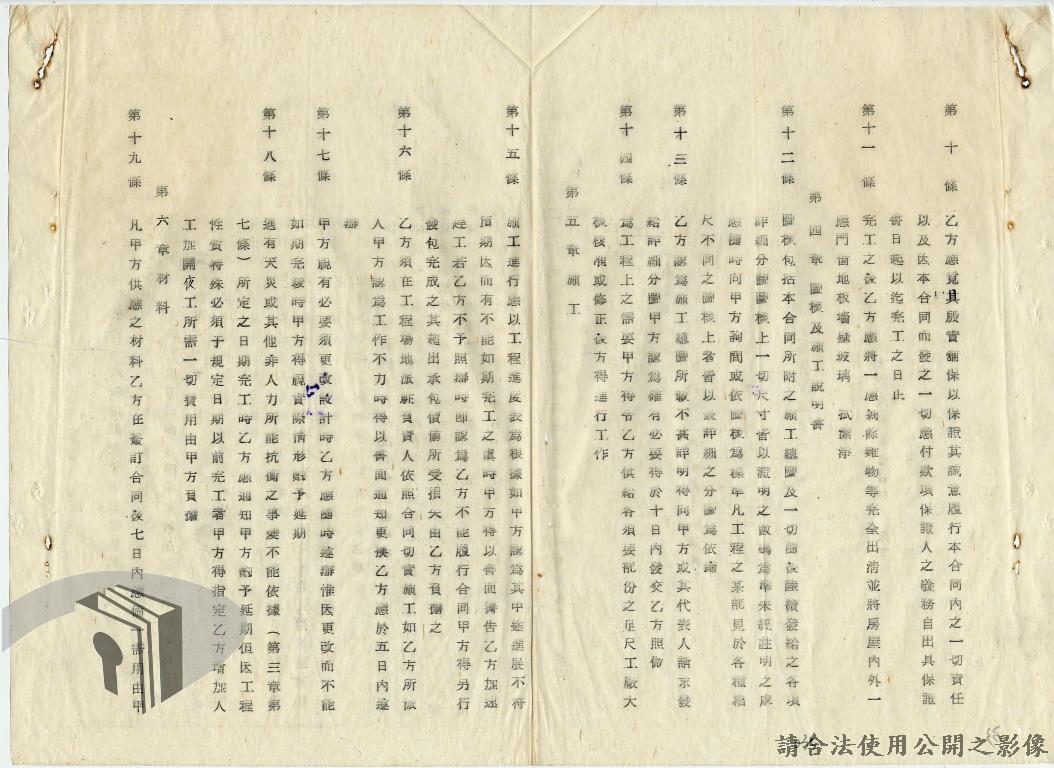 第十條 乙方應覓具殷實舖保以保證其誠意履行本合同內之一切責任
以及因本合同而發之一切應付款項保證人之義務自出具保證
書日起以迄完工之日止
第十一條 完工之後乙方應將一應剩餘雜物等完全出清並將房屋內外一
應門窗地板墻壁玻璃 拭潔淨
第四章 圖樣及施工說明書
第十二條 圖樣包括本合同所附之施工總圖及一切隨後陸續發給之各項
詳細分圖圖樣上一切尺寸皆以證明之數碼為準未經註明之處
應隨時向甲方詢問或依圖樣為標準凡工程之某部見於各種縮
尺不同之圖樣上者皆以最詳細之分圖為依歸
第十三條 乙方認為施工總圖所載不甚詳明得向甲方或其代表人請求發
給詳細分圖甲方認為確有必要得於十日內發交乙方照做
第十四條 為工程上之需要甲方得令乙方供給各須要部份之足尺工廠大
樣核准或修正後方得進行工作
第五章 施工
第十五條 施工進行應以工程進度表為根據如甲方認為其中途進展不符
預期因而有不能如期完工之虞時甲方得以書面警告乙方加速
趕工若乙方不予照辦時即認為乙方不能履行合同甲方得另行
發包完成之其超出承包價值所受損失由乙方負擔之
第十六條 乙方須在工程場地派駐負責人依照合同切實施工如乙方所派
人甲方認為工作不力時得以書面通知更換乙方應於五日內遵
辦
第十七條 甲方視有必要須更改設計時乙方應隨時遵辦惟因更改而不能
如期完竣時甲方得視實際情形酌予延期
第十八條 遇有天災或其他非人力所能抗衡之事變不能依據(第三章第
七條)所定之日期完工時乙方應通知甲方酌予延期但因工程
性質特殊必須于規定日期以前完工者甲方得指定乙方增加人
工加開夜工所需一切費用由甲方負擔
第六章 材料
第十九條 凡甲方供應之材料乙方在簽訂合同後七日內應備一需用由甲
請合法使用公開之影像